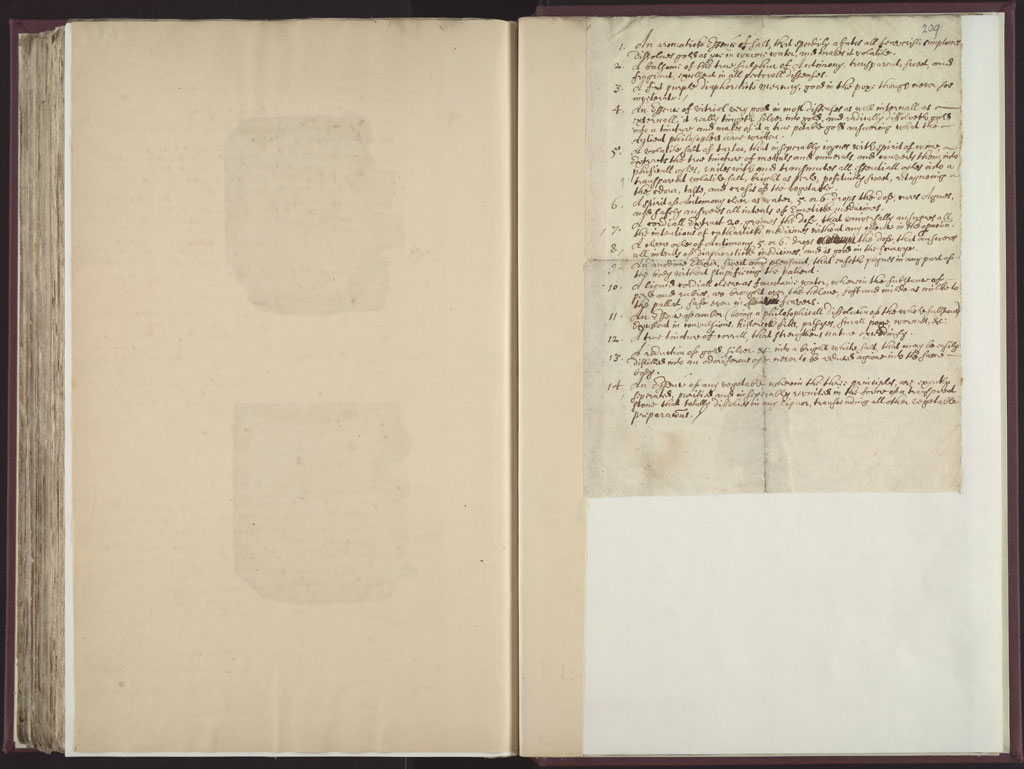 209
1. An aromatick Essence of salt, that speedily abates all feaverish symptoms,
dissolues gold as yce in warme water, and makes it volatile.
2. A balsame of the true sulphur of Antimony, transparent, sweet, and
fragrant, excellent in all pectorall diseases.
3. A fixt purple diaphoretick mercury, good in the pox though never soe
inveterate.
4. An Essence of vitriol very good in most diseases as well internall as
externall, it really tingeth silver into gold, and radically dissolveth gold
into a tincture and makes of it a true potable gold answering what the
Antient philosophers have written.
5. A volatile salt of tartar, that inseperably ioynes with spirit of wine,
Extracts the true tincture of metals and minerals, and converts them into
oyles, unites with and transmutes all essentiall oyles into a
transparent volatile salt, bright as perle, positively sweet, retayneing
the odour, tast, and crasis of the vegetable.
6. A spirit of Antimony cleer as water, 5 or 6 drops the dose, cures Agues,
and safely answeres all intents of Emetick medicines.
7. A cordiall Extract 20. graines the dose, that universally answeres all
the intentions of cathartick medicines without any offence in the operation.
8. A cleere oyle of Antimony, 5 or 6. drops the dose, that answeres
all intents of diaphoretick medicines, and is good in the scurvye.
9. An anodine Elixir, sweet and pleasant, that easeth paynes in any part of
the body without stupifieing the patient.
10. A liquid cordiall cleere as fountaine water, wherein the substance of
perle and rubies, are brought over the helme, soft and milde as milke to
the pallat, safe even in feavers.
11. An Essence of amber (being a philosophicall dissolution of the whole substance)
Excellent in convulsions, histericke fits, palsyes, small pox, wormes, &c.
12. A true tincture of corrall, that strengthens nature exceedingly.
13. A reduction of gold, silver, &c. into a bright white salt, that may be easily
distilled into an odoriferous oyle never to be reduced againe into the same
body.
14. An Essence of any vegetable wherein the three principles, are exactly
seperated, purified and inseperably reunited in the forme of a transparent
stone that totally dissolves in any liquor, transcending all other vegetable
preparations.